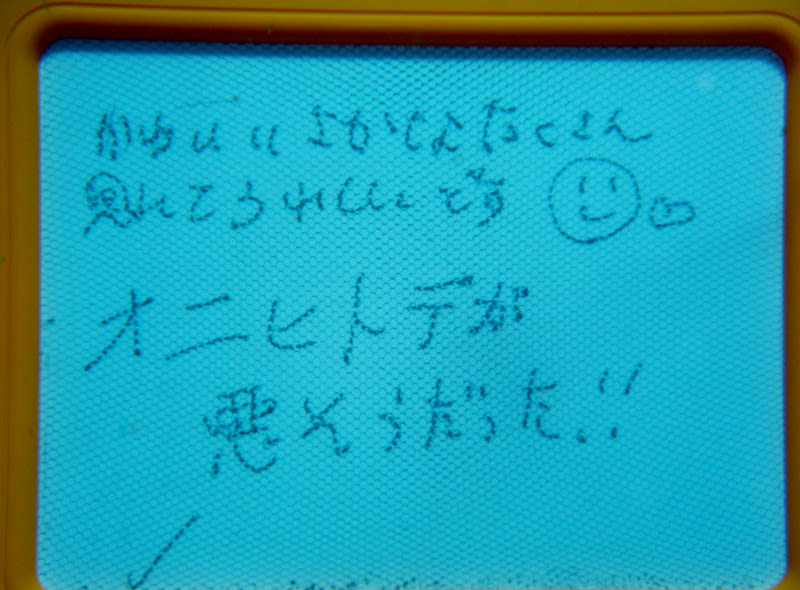 かわいいさかなたくさん
見れてうれしいです
オニヒトデが
悪そうだった!!